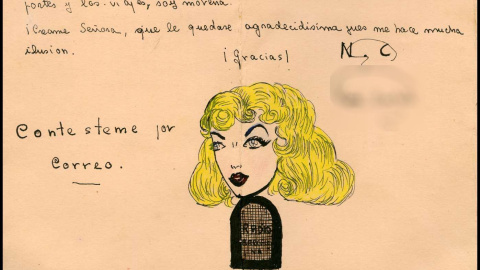 portes y los viajes, soy morena.
¡Créame Señora, que le quedaré agradecidísima pues me hace mucha
ilusion.
¡Gracias!
N C
Contésteme por
Correo.
Radio